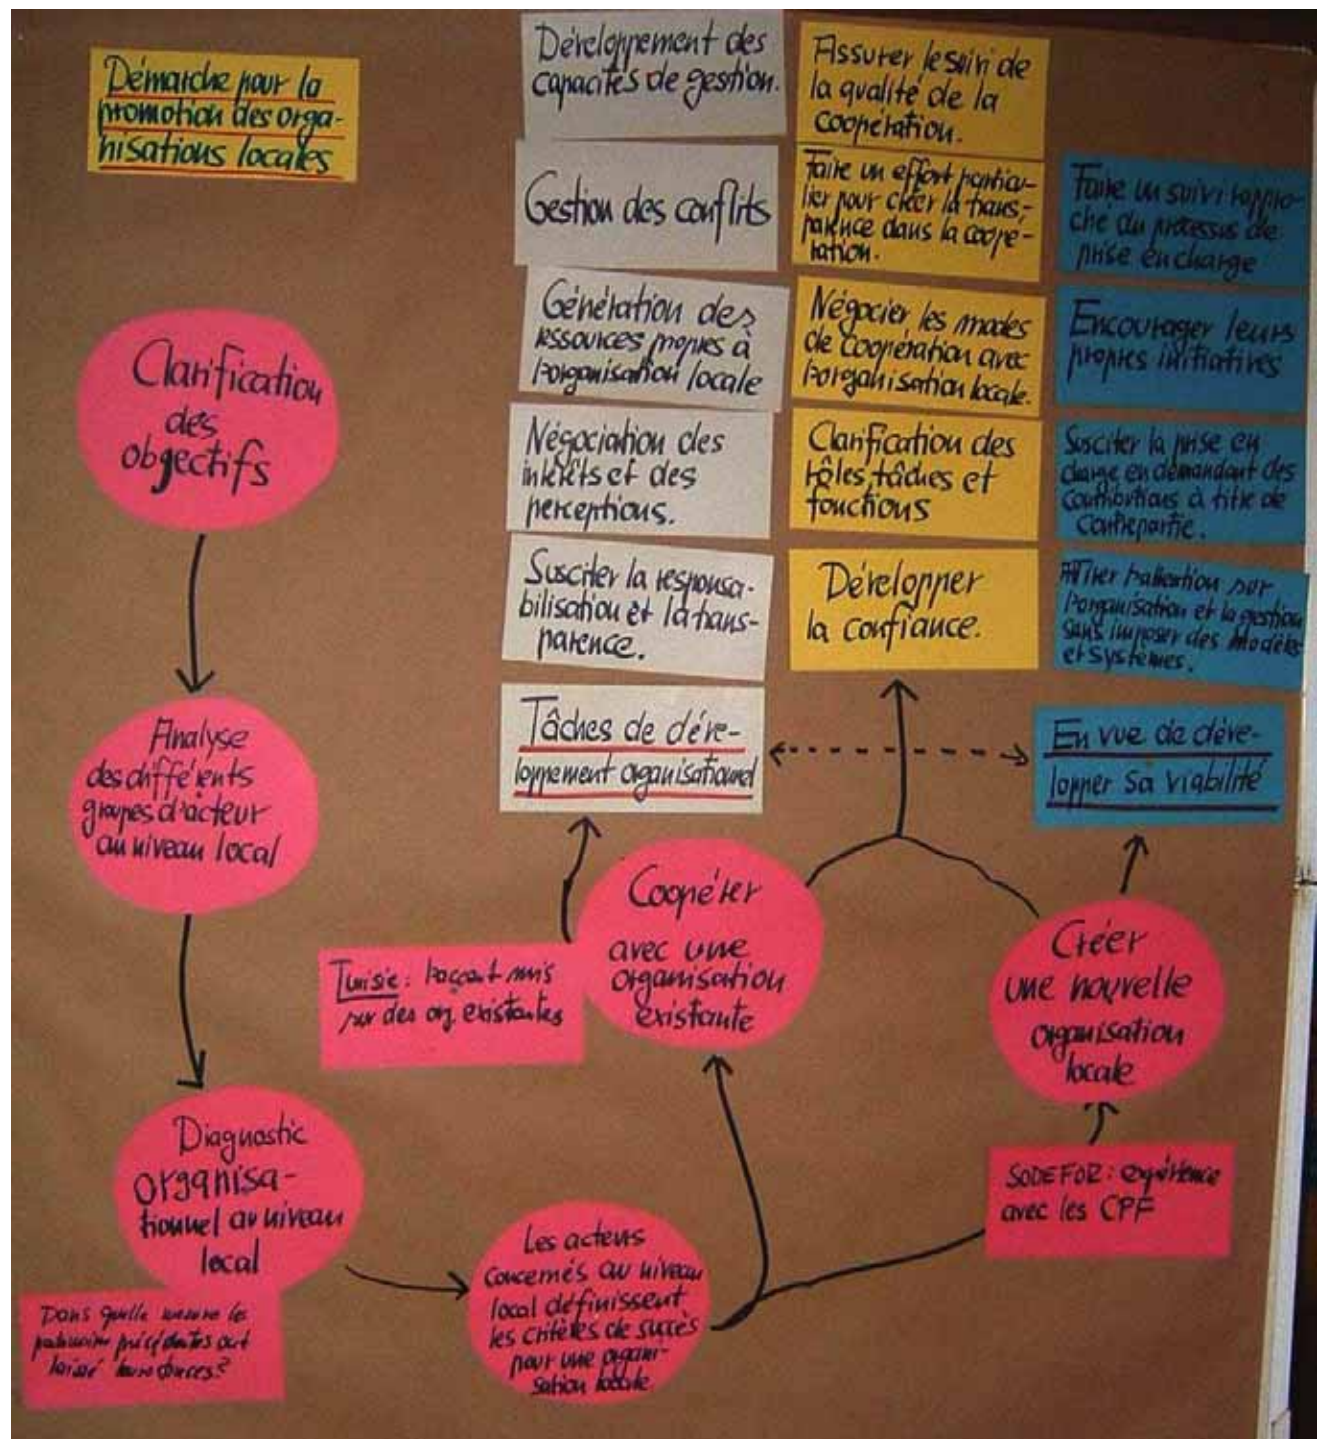 Démarche pour la
promotion des orga-
nisations locales
Clarification
des
objectifs
Analyse
des différents
groupes d'acteur
au niveau local
Diagnostic
organisa-
tionnel au niveau
local
Dans quelle mesure les
précédentes ont
laissé
Les acteurs
concernés au niveau
local définissent
les critères de succès
pour une organi-
sation locale.
Tunisie: l'accent mis
sur des org. existantes
Coopérer
avec une
organisation
existante
SODEFOR: expérience
avec les CPF
Créer
une nouvelle
organisation
locale
Développement des
capacités de gestion.
Gestion des conflits
Génération des
ressources propres à
l'organisation locale
Négociation des
intérêts et des
perceptions.
Susciter la responsa-
bilisation et la trans-
parence.
Tâches de déve-
loppement organisationnel
Assurer le suivi de
la qualité de la
coopération.
Faire un effort particu-
lier pour créer la trans-
parence dans la coopé-
ration.
Négocier les modes
de coopération avec
l'organisation locale.
Clarification des
rôles, tâches et
fonctions
Développer
la confiance.
Faire un suivi rappro-
ché du processus de
prise en charge
Encourager leurs
propres initiatives
Susciter la prise en
charge en demandant des
contributions à titre de
contrepartie.
Attirer l'attention sur
l'organisation et la gestion
sans imposer des modèles
et systèmes.
En vue de déve-
lopper sa viabilité